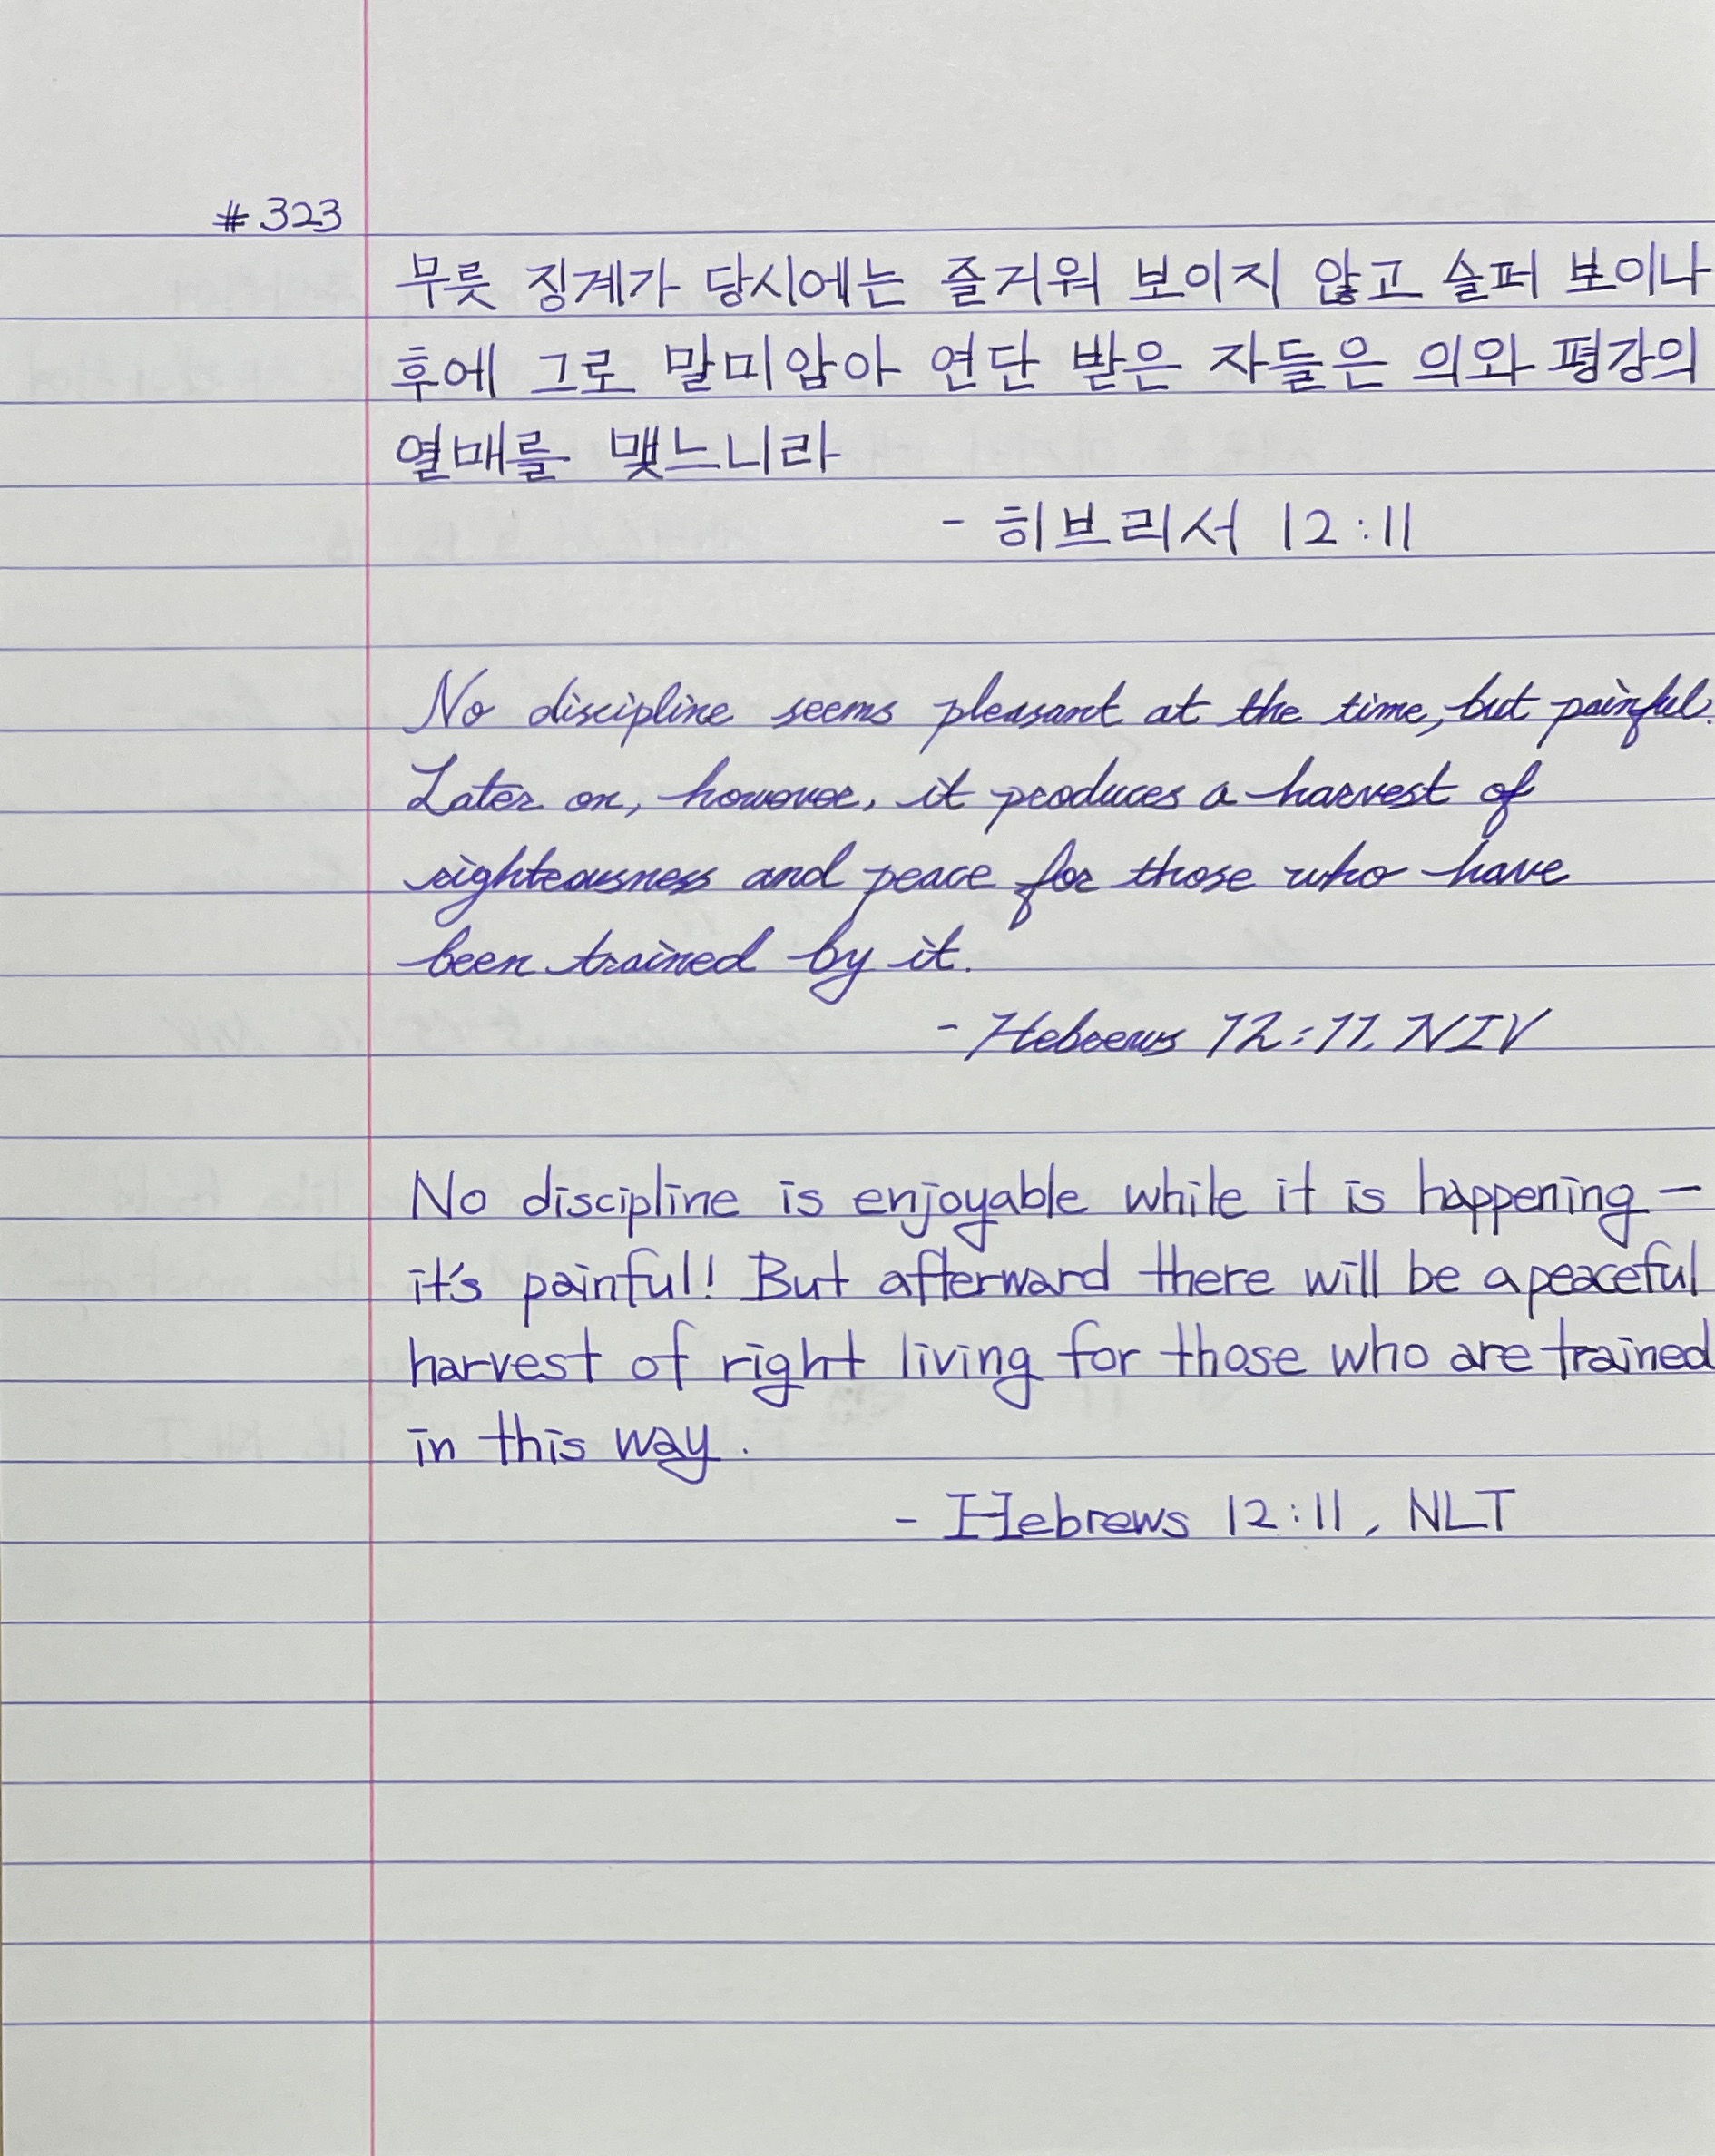 #323
무릇 징계가 당시에는 즐거워 보이지 않고 슬퍼 보이나
후에 그로 말미암아 연단 받은 자들은 의와 평강의
열매를 맺느니라
- 히브리서 12:11
No discipline seems pleasant at the time, but painful.
Later on, however, it produces a harvest of
righteousness and peace for those who have
been trained by it.
- Hebrews 12:11, NIV
No discipline is enjoyable while it is happening —
it's painful! But afterward there will be a peaceful
harvest of right living for those who are trained
in this way.
- Hebrews 12:11, NLT